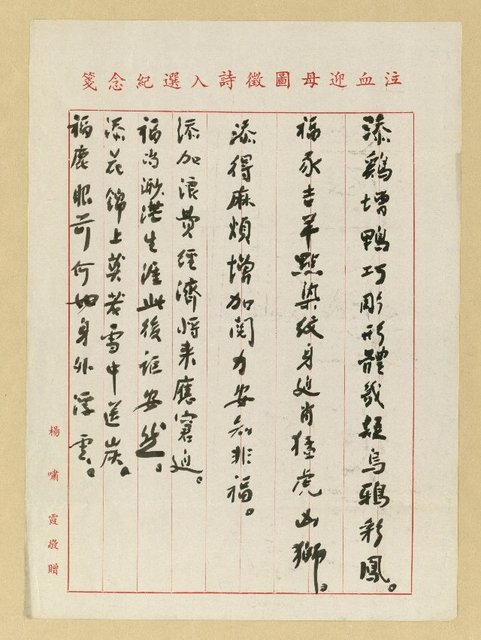 注血迎母圖徵詩入選紀念箋
添鷄增鴨巧彫形體烏鴉彩鳳。
福豕吉羊點染紋身迫肖猛虎凶獅。
添得麻煩增加閱力安知非福。
添加浪費經濟將来應窘迫。
福尚渺茫生涯此後詎安然。
添花錦上莫若雪中送炭。
福慶眼前何如身外浮雲。
楊嘯霞敬贈